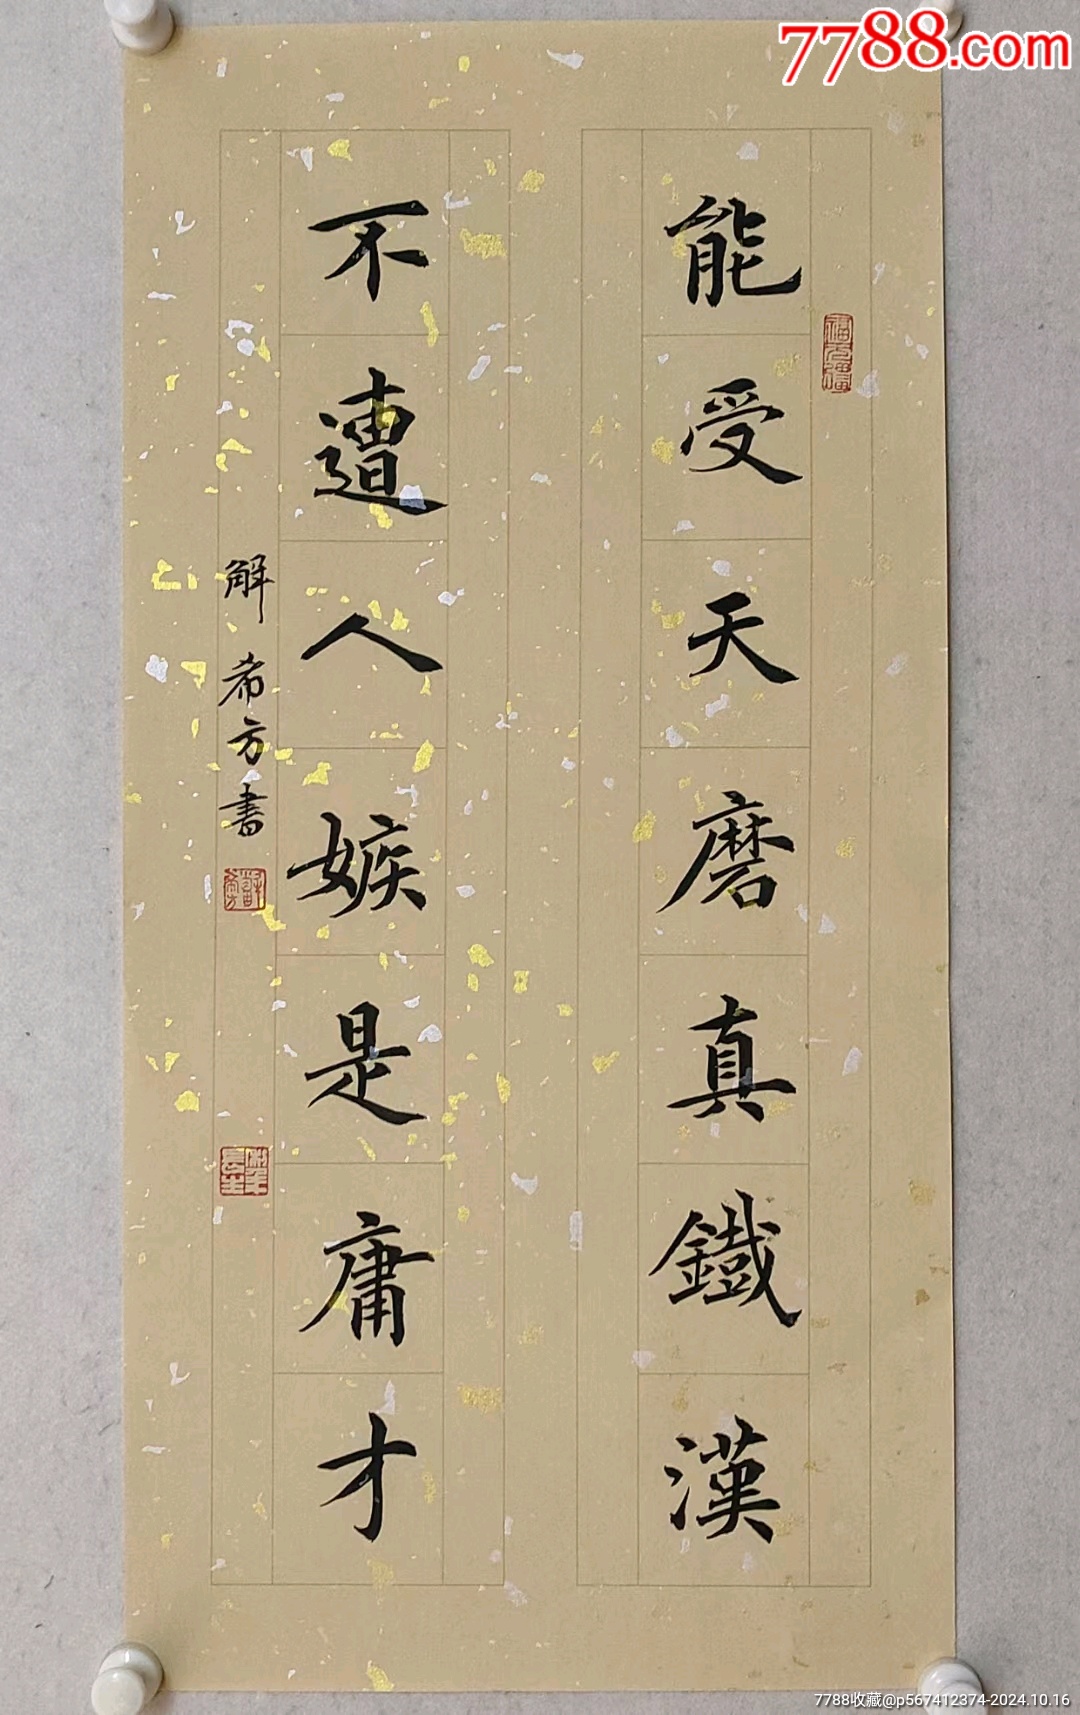 7788.com
能受天磨真鐵漢
不遭人嫉是庸才
解希方書
7788收藏@p567412374-2024.10.16